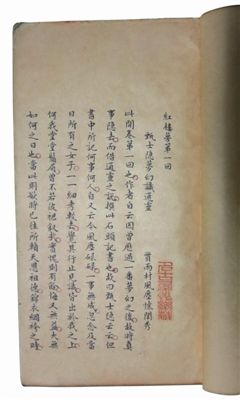 紅樓夢第一回
甄士隱夢幻識通靈
賈雨村風塵懷閨秀
此開卷第一回也作者自云曾歷過一番夢幻之後故將真
事隱去而借通靈之說撰此石頭記書也故曰甄士隱云云但
書中所記何事何人自又云今風塵碌碌一事無成忽念及當
日所有之女子一一細考較去覺其行止見識皆出於我之上
何我堂堂鬚眉曾不若彼裙釵我實愧則有餘悔又無益大無
如何之日也當此則欲將已往所賴天恩祖德錦衣紈袴之時